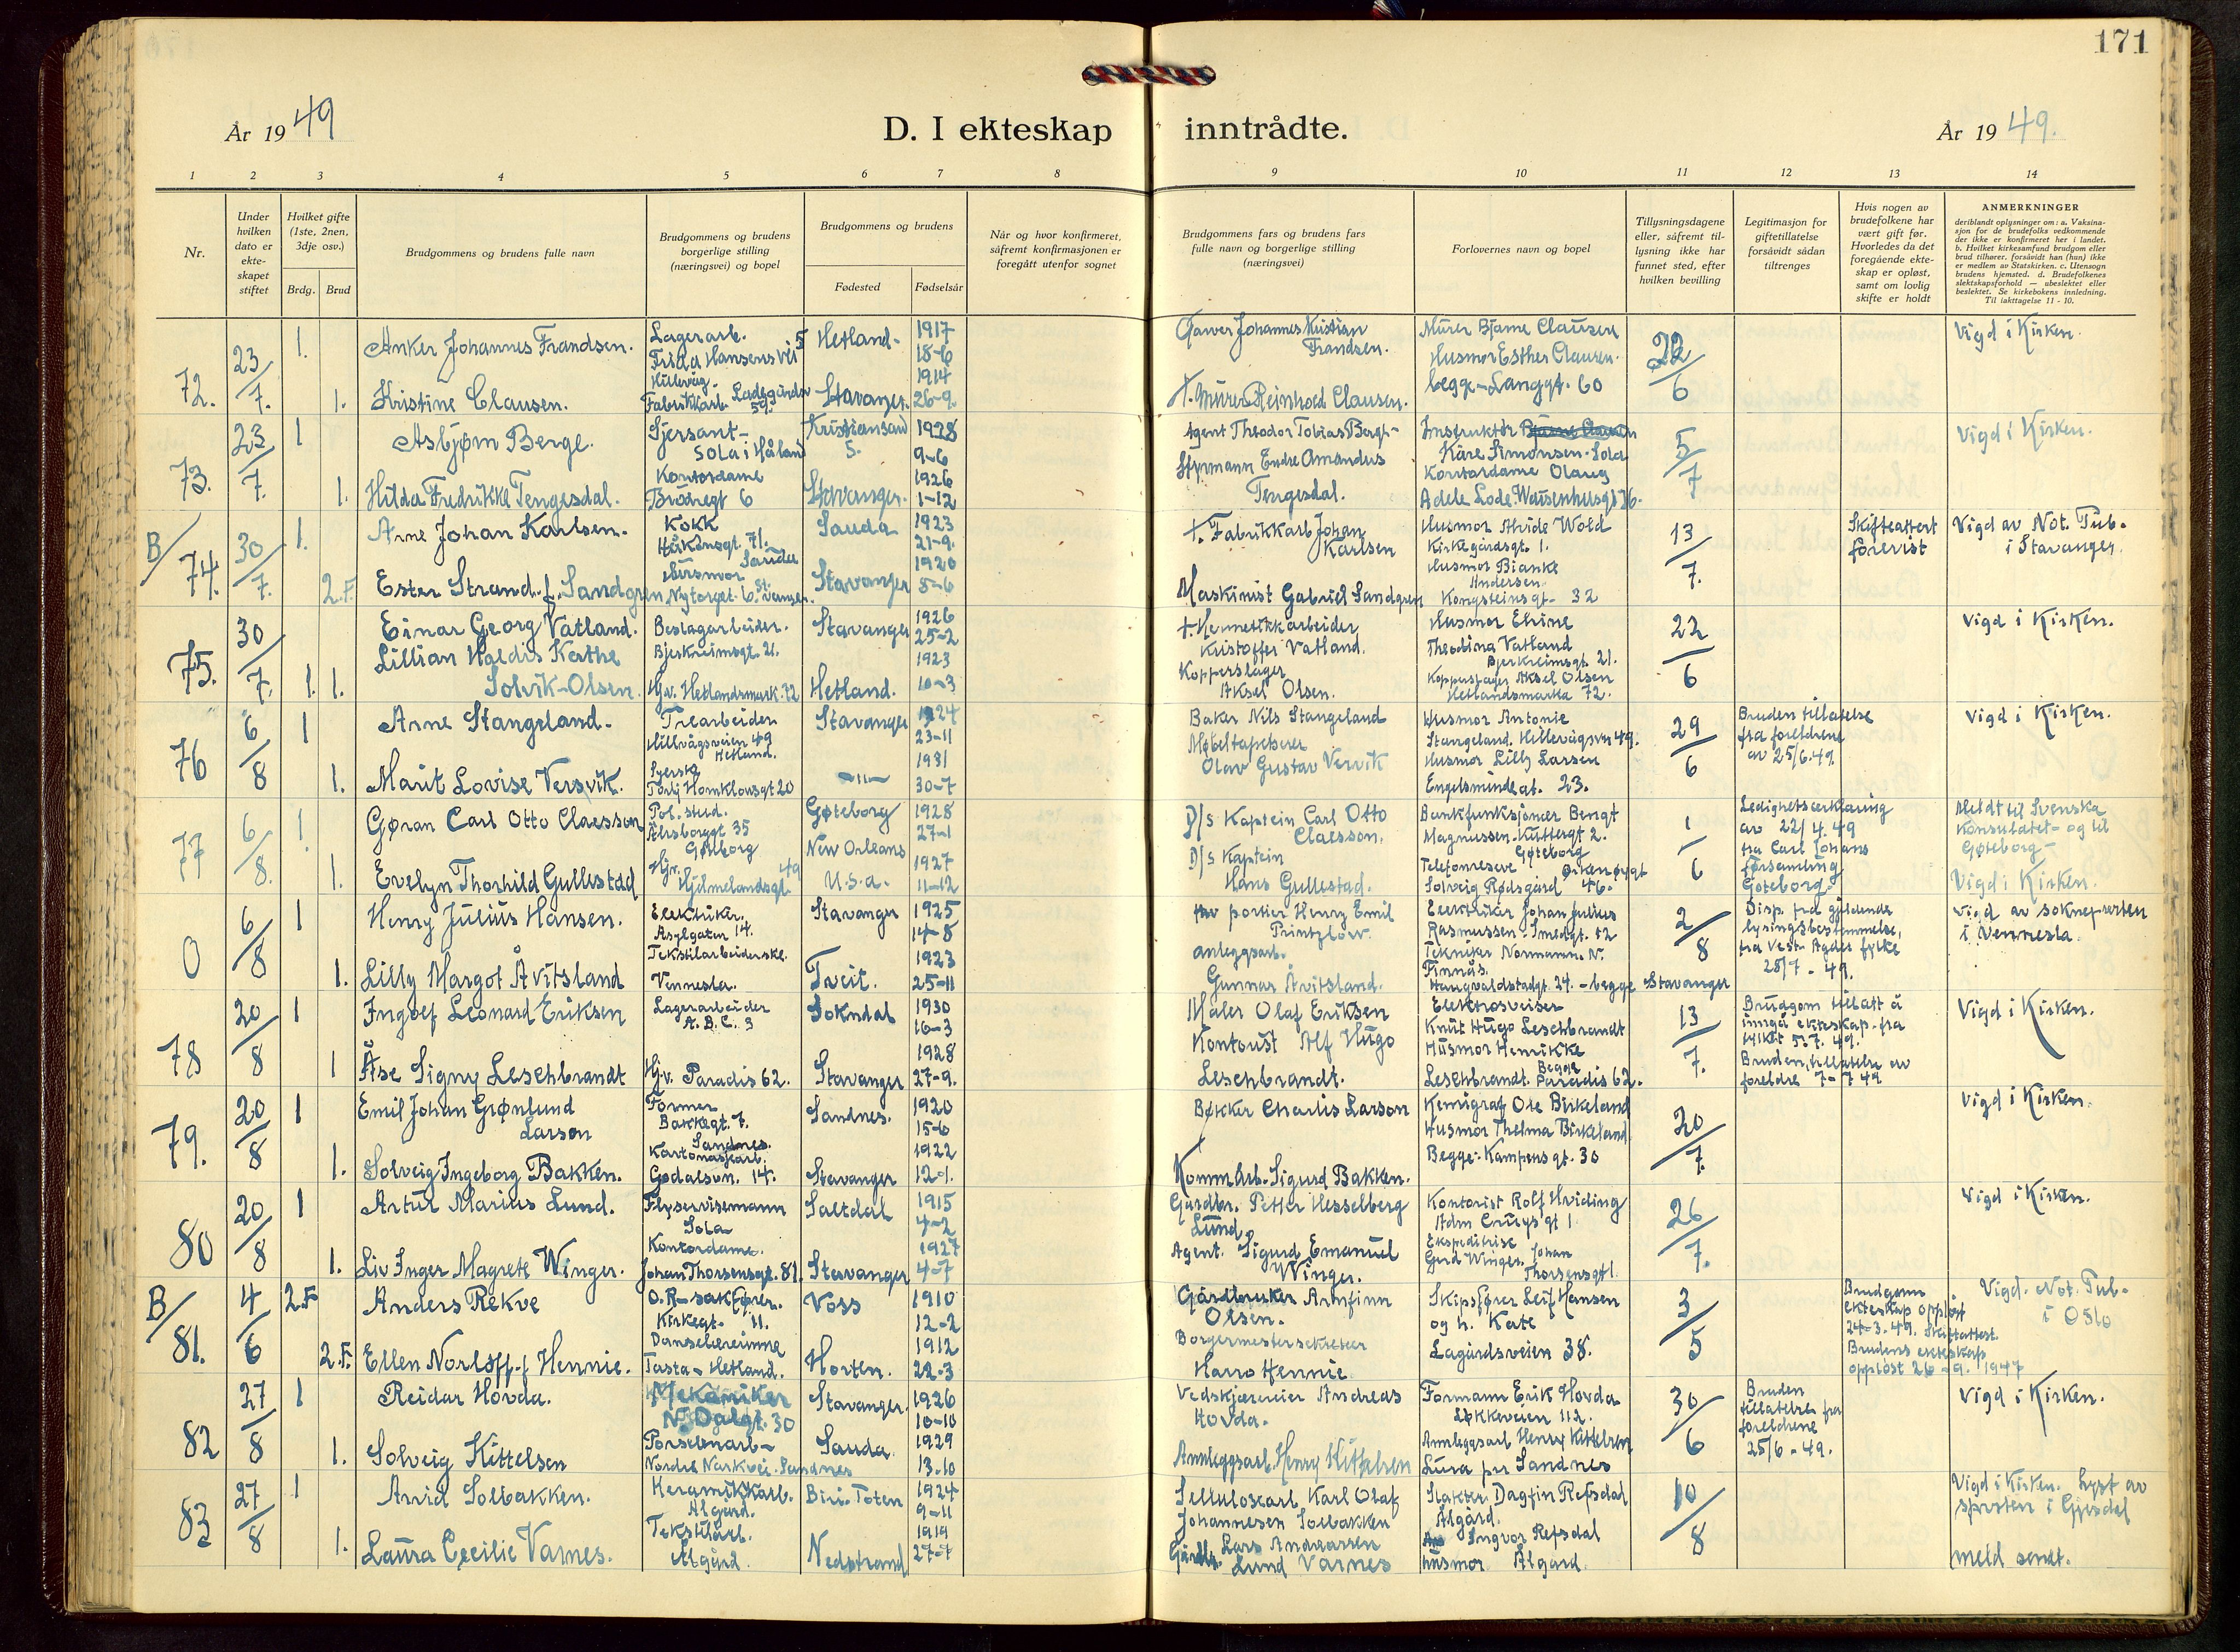 171
År 1949
D. I ekteskap inntrådte.
År 1949.
1 2 3 4 5 6 7 8 9 10 11 12 13 14
Nr.
Under hvilken dato er ekte-skapet stiftet
Hvilket gifte (1ste, 2nen, 3dje osv.)
Brdg. Brud
Brudgommens og brudens fulle navn
Brudgommens og brudens borgerlige stilling (næringsvei) og bopel
Brudgommens og brudens
Fødested
Fødselsår
Når og hvor konfirmeret, såfremt konfirmasjonen er foregått utenfor sognet
Brudgommens fars og brudens fars fulle navn og borgerlige stilling (næringsvei)
Forlovernes navn og bopel
Tillysningsdagene eller, såfremt til-lysning ikke har funnet sted, efter hvilken bevilling
Legitimasjon for giftetillatelse forsåvidt sådan tiltrenges
Hvis nogen av brudefolkene har vært gift før. Hvorledes da det foregående ekte-skap er opløst, samt om lovlig skifte er holdt
ANMERKNINGER
deriblandt oplysninger om: a. Vaksina-
sjon for de brudefolks vedkommende
der ikke er konfirmeret her i landet.
b. Hvilket kirkesamfund brudgom eller
brud tilhører, forsåvidt han (hun) ikke
er medlem av Statskirken. c. Utensogn
brudens hjemsted. d. Brudefolkenes
slektskapsforhold — ubeslektet eller
beslektet. Se kirkebokens innledning.
Til iakttagelse 11 - 10.
72. 23/7. 1. Anker Johannes Frandsen. Lagerarb. Frida Hansens vei 5 Hillevåg. Hetland- 1917 18-6 Garver Johannes Kristian Frandsen. Murer Bjarne Clausen Husmor Esther Clausen. begge - Langgt. 60 22/6 Vigd i Kirken.
1. Kristine Clausen. Fabrikkarb. Ladegårdsv 59. Stavanger. 1914 26-9. †. Murer Reinhold Clausen.
73. 23/7. 1 Asbjørn Berge. Sjersant- Sola i Håland Kristiansand S. 1928 9-6 Agent Theodor Tobias Berge- Instruktør Kåre Simonsen. Sola 5/7 Vigd i Kirken.
1. Hilda Fredrikke Tengesdal. Kontordame Brødregt 6 Stavanger. 1926 1-12 Styrmann Endre Amandus Tengesdal. Kontordame Olaug Adele Lode. Waisenhusgt 36.
B/ 74. 30/7. 1. Arne Johan Karlsen. Kokk Håkonsgt. 71. Sauda 1923 21-9. †. Fabrikkarb Johan Karlsen Husmor Wold Kirkegårdsgt. 1. 13/7. Skifteattest forevist Vigd av Not. Pub. i Stavanger.
2.F. Ester Strand f. Sandgren Husmor Nytorget 6. Stvanger. Stavanger 1920 5-6 Maskinist Gabriel Sandgren Husmor Bianke Andersen Kongsteinsgt- 32
75. 30/7. 1. Einar Georg Vatland. Beslagarbeider. Bjerkreimsgt. 21. Stavanger 1926 25-2 † Hermetikkarbeider Kristoffer Vatland. Husmor Elrine Theodina Vatland Bjerkreimsgt. 21. 22/6 Vigd i Kirken.
1. Lillian Haldis Kathe Solvik-Olsen. Hjv. Hetlandsmark. 72 Hetland. 1923 10-3 Kopperslager Aksel Olsen. Kopperslager Aksel Olsen Hetlandsmarka 72.
76 6/8 1 Arne Stangeland. Trearbeider Hillevågsveien 49 Hetland. Stavanger 1924 23-11 Baker Nils Stangeland Husmor Antonie Stangeland. Hillevågsvn 49. 29/6 Bruden tillatelse fra foreldrene av 25/6.49. Vigd i Kirken.
1. Marit Lovise Versvik. Syerske Torbj Hornklovsgt 20 -"- 1931 30-7 Møbeltapetserer Olav Gustav Versvik Husmor Lilly Larsen Engelsminde at. 23.
77 6/8. 1 Gøran Carl Otto Claesson Pol. stud. Göteborg Gøteborg 1928 27-1 D/s Kaptein Carl Otto Claesson. Bankfunksjonær Bengt Magnussen. Gøteborg 1/6 Ledighetserklæring av 22/4.49 fra Carl Johans församling Göteborg. Meldt til Svenska Konsulatet- og til Gøteborg- Vigd i Kirken.
1. Evelyn Thorhild Gullestad Hjv. Hjelmelandsgt 49 New Orleans U.S.A. 1927 11-12 D/s Kaptein Hans Gullestad. Solveig Rødsgård 46.
0 6/8 1 Henry Julius Hansen. Elektriker. Asylgaten 14. Stavanger 1925 14-8 portier Henry Emil Printzlow. Elektriker Johan Julius Rasmussen. Smedgt. 12 2/8 Disp. fra gjeldende lysingsbestemmelse, fra Vest-Agder fylke 28/7 - 49. Vigd av sokneprsten i Vennesla.
1. Lilly Margot Åvitsland Tekstilarbeiderske. Vennesla. Tveit. 1923 25-11 anleggsarb. Gunnar Åvitsland. Tekniker Normann. N. Finnås. Haugvaldstadgt. 24. - begge Stavanger
78 20/8 1 Ingolf Leonard Eriksen Lagerarbeider A.B.C. 3 Sokndal 1930 10-3 Maler Olaf Eriksen Elektrosveiser Knut Hugo Leschbrandt 13/7. Brudgom tillatt å inngå ekteskap. fra fylket 5.7. 49. Bruden, tillatelse av foreldre 7-7 49 Vigd i Kirken.
1 Åse Signy Leschbrandt Hjv. Paradis 62. Stavanger 1928 27-9. Kontorist Alf Hugo Leschbrandt. Husmor Henrikke Leschbrandt. Begge Paradis 62.
79. 20/8 1 Emil Johan Grønlund Larson Former Bakkegt. 7. Sandnes. Sandnes. 1920 15-6 Bøkker Charlis Larson Kemigraf Ole Birkeland 20/7. Vigd i Kirken.
1. Solveig Ingeborg Bakken. Kartonasjearb. Godalsvn. 14. Stavanger 1922 12-1. Komm. Arb. Sigurd Bakken. Husmor Thelma Birkeland Begge: Kampensgt. 30
80 20/8 1 Artur Marius Lund. Flyservisemann Sola Saltdal 1915 4-2 Gårdbr. Petter Hesselberg Lund Kontorist Rolf Hviding Adm Cruysgt 1 26/7. Vigd i Kirken.
1. Liv Inger Magrete Winger. Kontordame. Johan Thorsensgt. 81. Stavanger 1927 4-7 Agent. Sigurd Emanuel Winger. Ekspeditrise Gerd Winger. Johan Thorsensgt
B/ 81. 4/6 2.F Anders Rekve O.R-sakfører. Kirkegt. 11. Voss 1910 12-2 Gårdbruker Arnfinn Olsen. Skipsfører Leif Hansen og h. Kate Lagårdsveien 38. 3/5 Brudgoms ekteskap oppløst 24-3.49. Skifteattest. Brudens ekteskap oppløst 26-9. 1947 Vigd. Not. Pub. i Oslo
2.F. Ellen Norløff f Hennie. Danselærerinne Tasta - Hetland. Horten. 1912 22-3 Borgermestersekretær Harro Hennie.
82 27/8 1 Reidar Hovda. Mekaniker N. Dalgt. 30 Stavanger. 1926 10-10 Vedskjæreeier Andreas Hovda. Formann Erik Hovda Løkkeveien 112. 30/6 Bruden tillatelse fra foreldrene 25/6 - 49. Vigd i Kirken.
1. Solveig Kittelsen Porselenarb- Nordre Sandnes Sauda. 1929 13-10 Annleggsarb. Henry Kittelsen Annleggsarb Henry Kittelsen Lura pr Sandnes
83 27/8 1 Arvid Solbakken. Keramikkarb. Ålgård. Biri. Toten 1924 9-11 Sellulosearb. Karl Olaf Johannesen Solbakken Slakter Dagfin Refsdal Ålgård. 10/8 Vigd i Kirken. lyst av sprsten i Gjesdal
1. Laura Cecilie Varnes. Tekstilarb. Ålgård. Nedstrand 1919 27-7 Gårdbr. Lars Andreassen Lund Varnes Ingvor Refsdal husmor Ålgård. meld sendt.